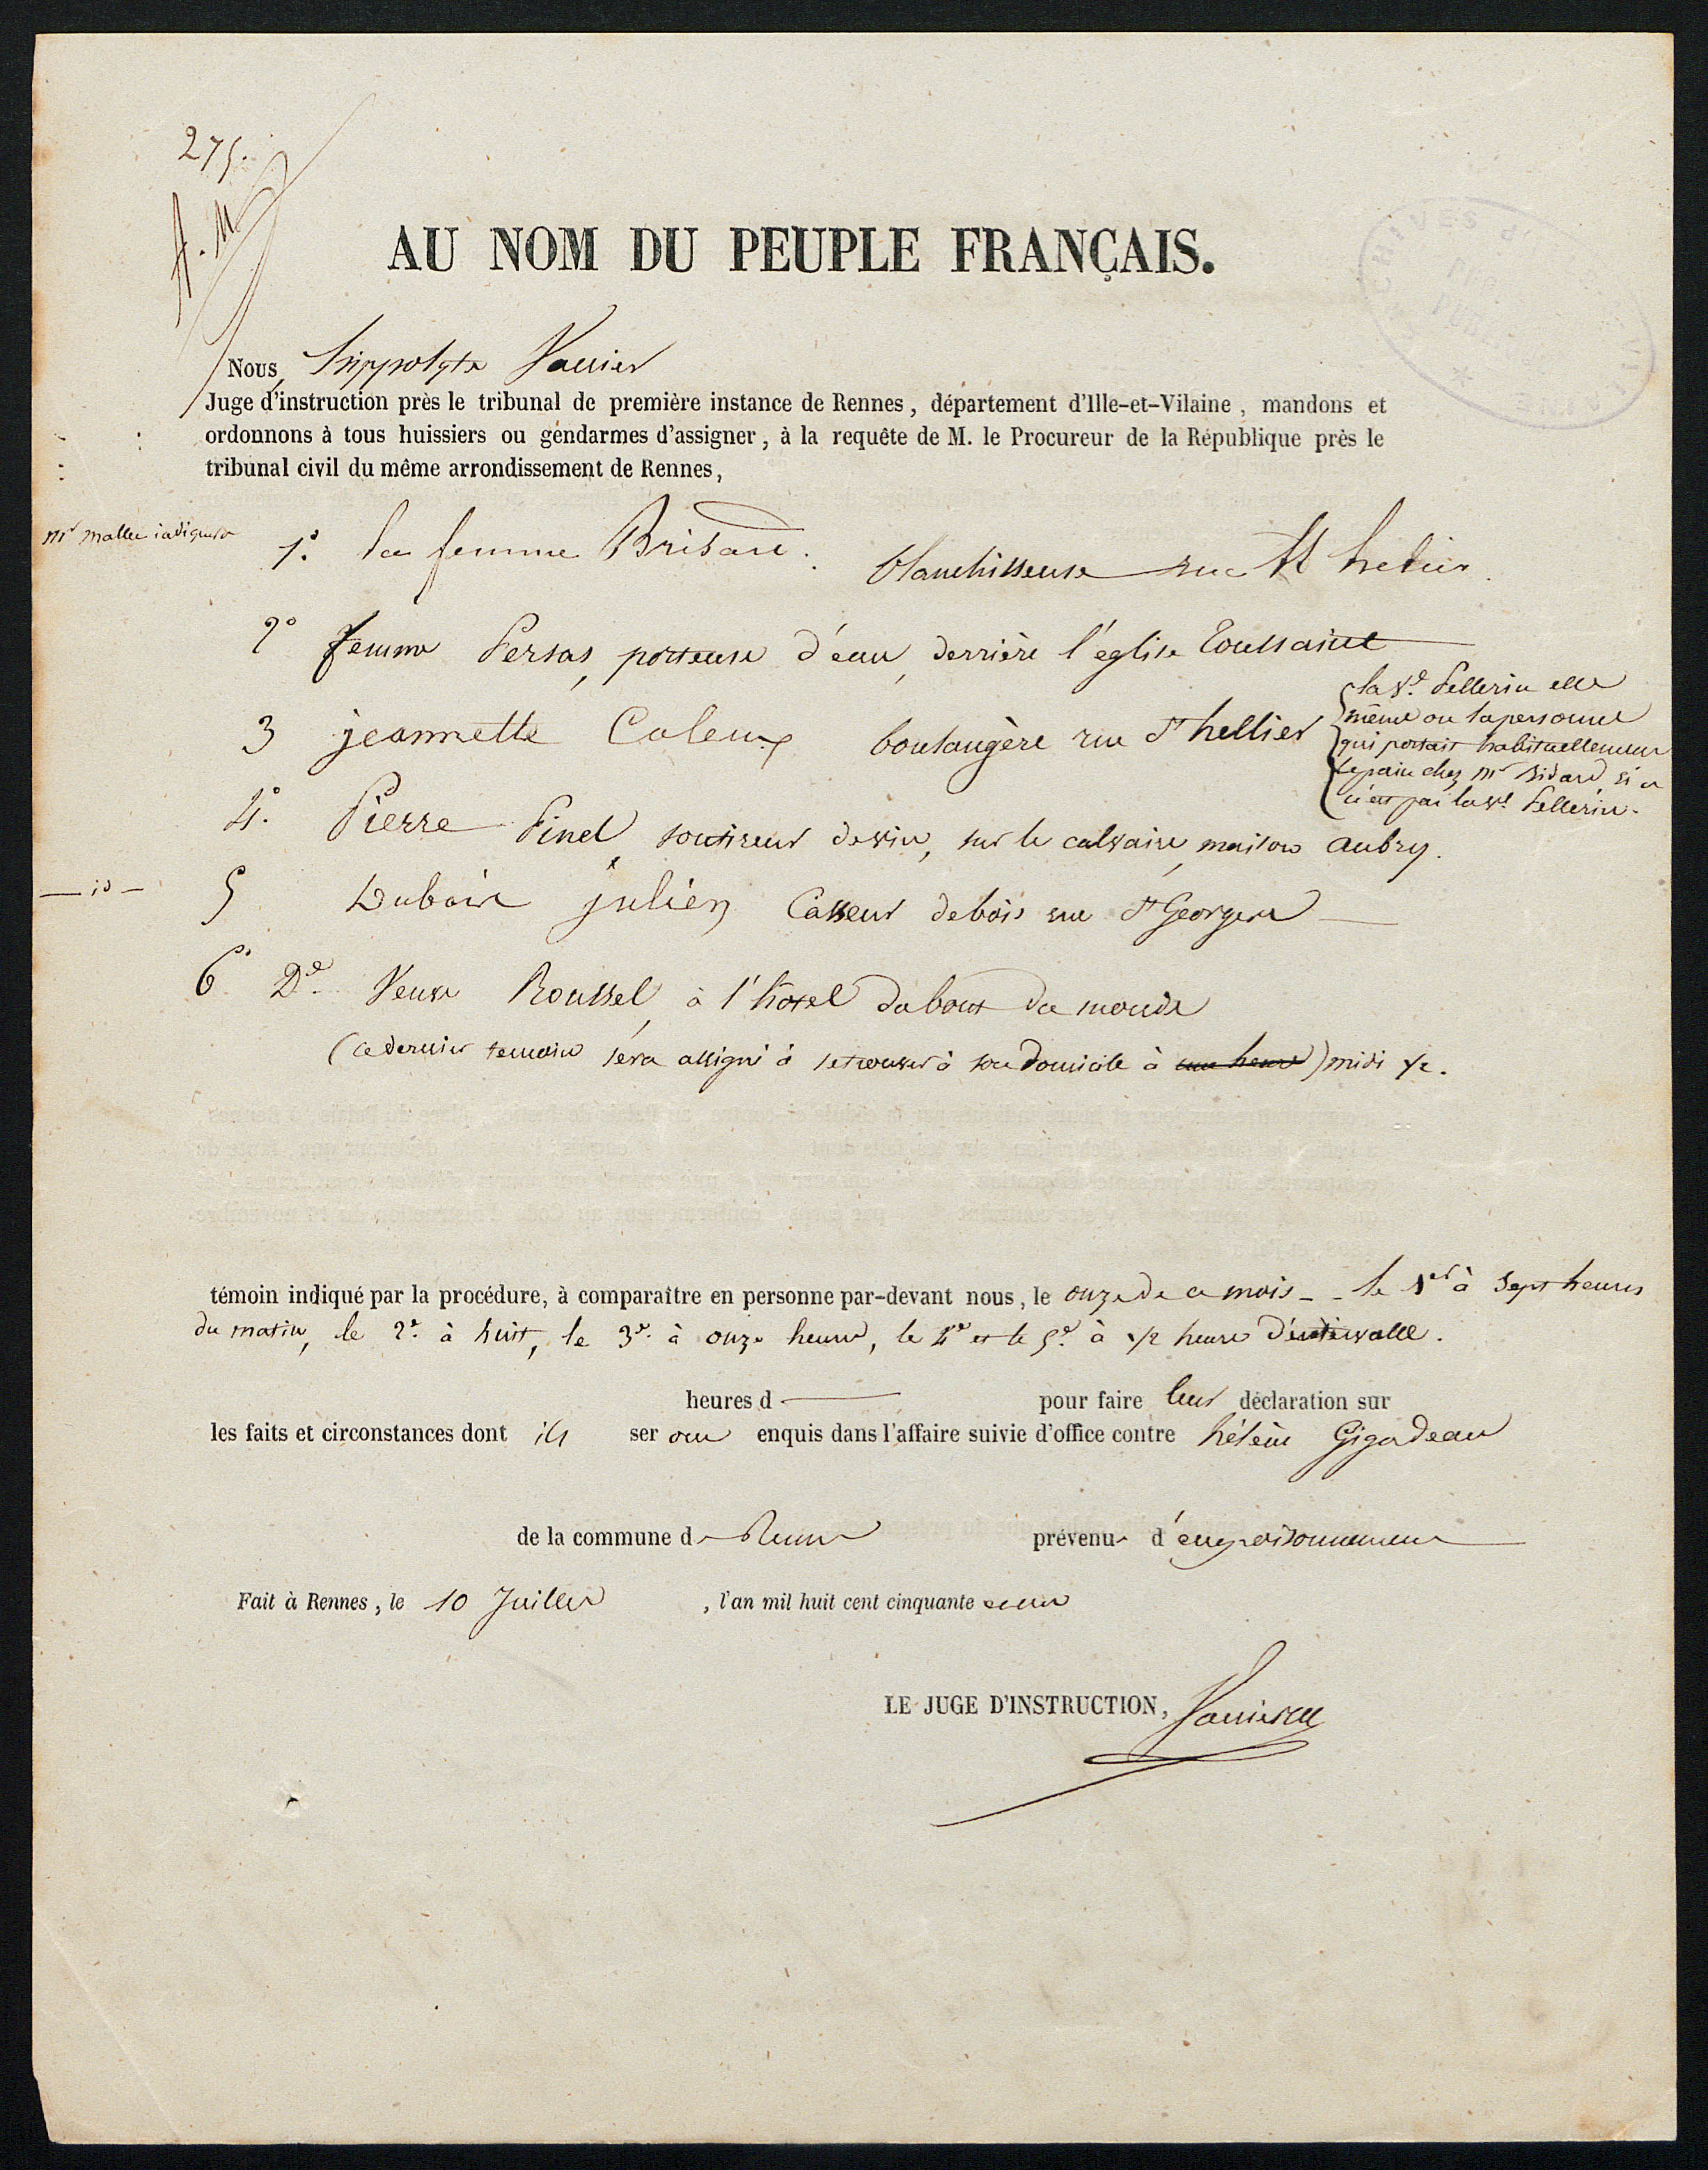 275.
A. M
AU NOM DU PEUPLE FRANÇAIS.
Nous, hippolyte Vannier
Juge d'instruction près le tribunal de première instance de Rennes, département d'Ille-et-Vilaine, mandons et
ordonnons à tous huissiers ou gendarmes d'assigner, à la requête de M. le Procureur de la République près le
tribunal civil du même arrondissement de Rennes,
mr mallu indiquera
1.° la femme Brisard. blanchisseuse rue St helier.
2° femme Persas, porteuse d'eau, derrière l'église Toussaint
3 jeannette boulangère rue St hellier
la Ve. Pellerin elle
même ou la personne
qui portait habituellement
le pain chez mr Bidard si ce
n'est pas la Ve Pellerin.
4.° Pierre Pinel, soutireur de vin, sur le calvaire, maison aubry.
— id —
5 Dubois julien Casseur de bois rue St Georges
6° De. Veuve Roussel, à l'hotel du bout du monde
(ce dernier temoin sera assigné à se trouver à son domicile à une heure) midi 1/2.
témoin indiqué par la procédure, à comparaître en personne par-devant nous, le onze de ce mois - - le 1er à sept heures
du matin, le 2e. à huit, le 3e. à onze heures, le 4e et le 5e. à 1/2 heure d'intervalle.
heures d — pour faire leur déclaration sur
les faits et circonstances dont ils ser ont enquis dans l'affaire suivie d'office contre hélène Gigadeau
de la commune de Rennes prévenue d'empoisonnement
Fait à Rennes, le 10 Juillet, l'an mil huit cent cinquante et un
LE JUGE D'INSTRUCTION, Vannier